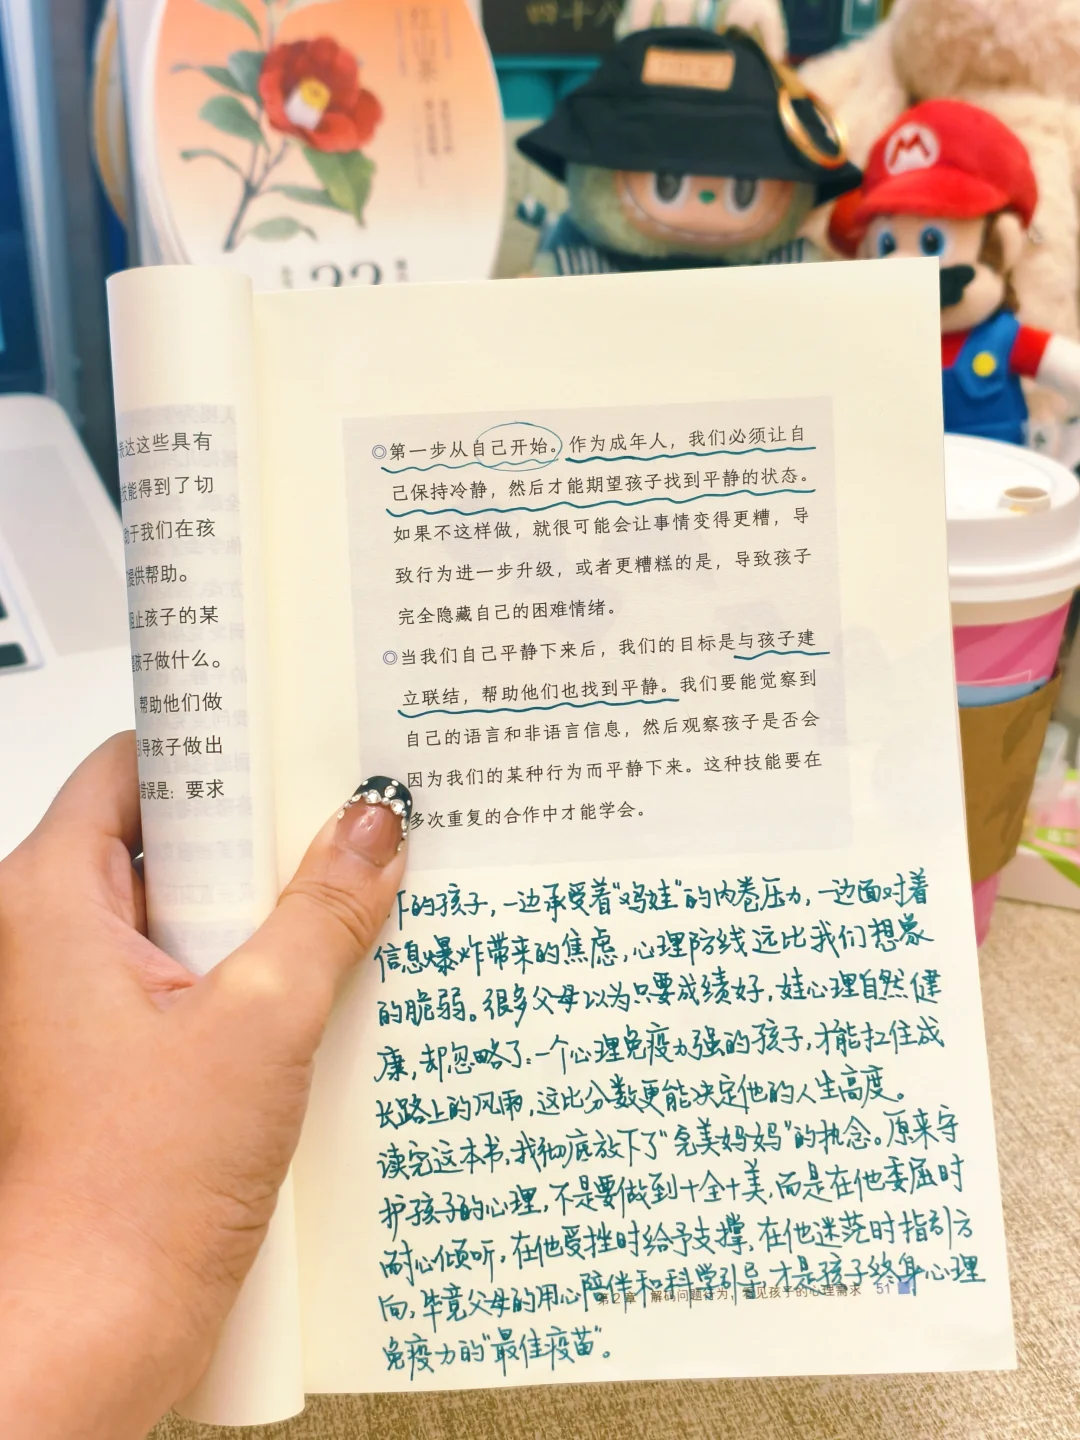 红山茶
四十八
22
表达这些具有
技能得到了切
助于我们在孩
提供帮助。
阻止孩子的某
孩子做什么。
，帮助他们做
引导孩子做出
错误是：要求
◎第一步从自己开始。作为成年人，我们必须让自
己保持冷静，然后才能期望孩子找到平静的状态。
如果不这样做，就很可能会让事情变得更糟，导
致行为进一步升级，或者更糟糕的是，导致孩子
完全隐藏自己的困难情绪。
◎当我们自己平静下来后，我们的目标是与孩子建
立联结，帮助他们也找到平静。我们要能觉察到
自己的语言和非语言信息，然后观察孩子是否会
因为我们的某种行为而平静下来。这种技能要在
多次重复的合作中才能学会。
的孩子，一边承受着“鸡娃”的内卷压力，一边面对着
信息爆炸带来的焦虑，心理防线远比我们想象
的脆弱。很多父母以为只要成绩好，娃心理自然健
康，却忽略了：一个心理免疫力强的孩子，才能扛住成
长路上的风雨，这比分数更能决定他的人生高度。
读完这本书，我彻底放下了“完美妈妈”的执念。原来守
护孩子的心理，不是要做到十全十美，而是在他委屈时
耐心倾听，在他受挫时给予支撑，在他迷茫时指引方
向，毕竟父母的用心陪伴和科学引导，才是孩子终身心理
免疫力的“最佳疫苗”。
第2章 解码问题行为，看见孩子的心理需求 51